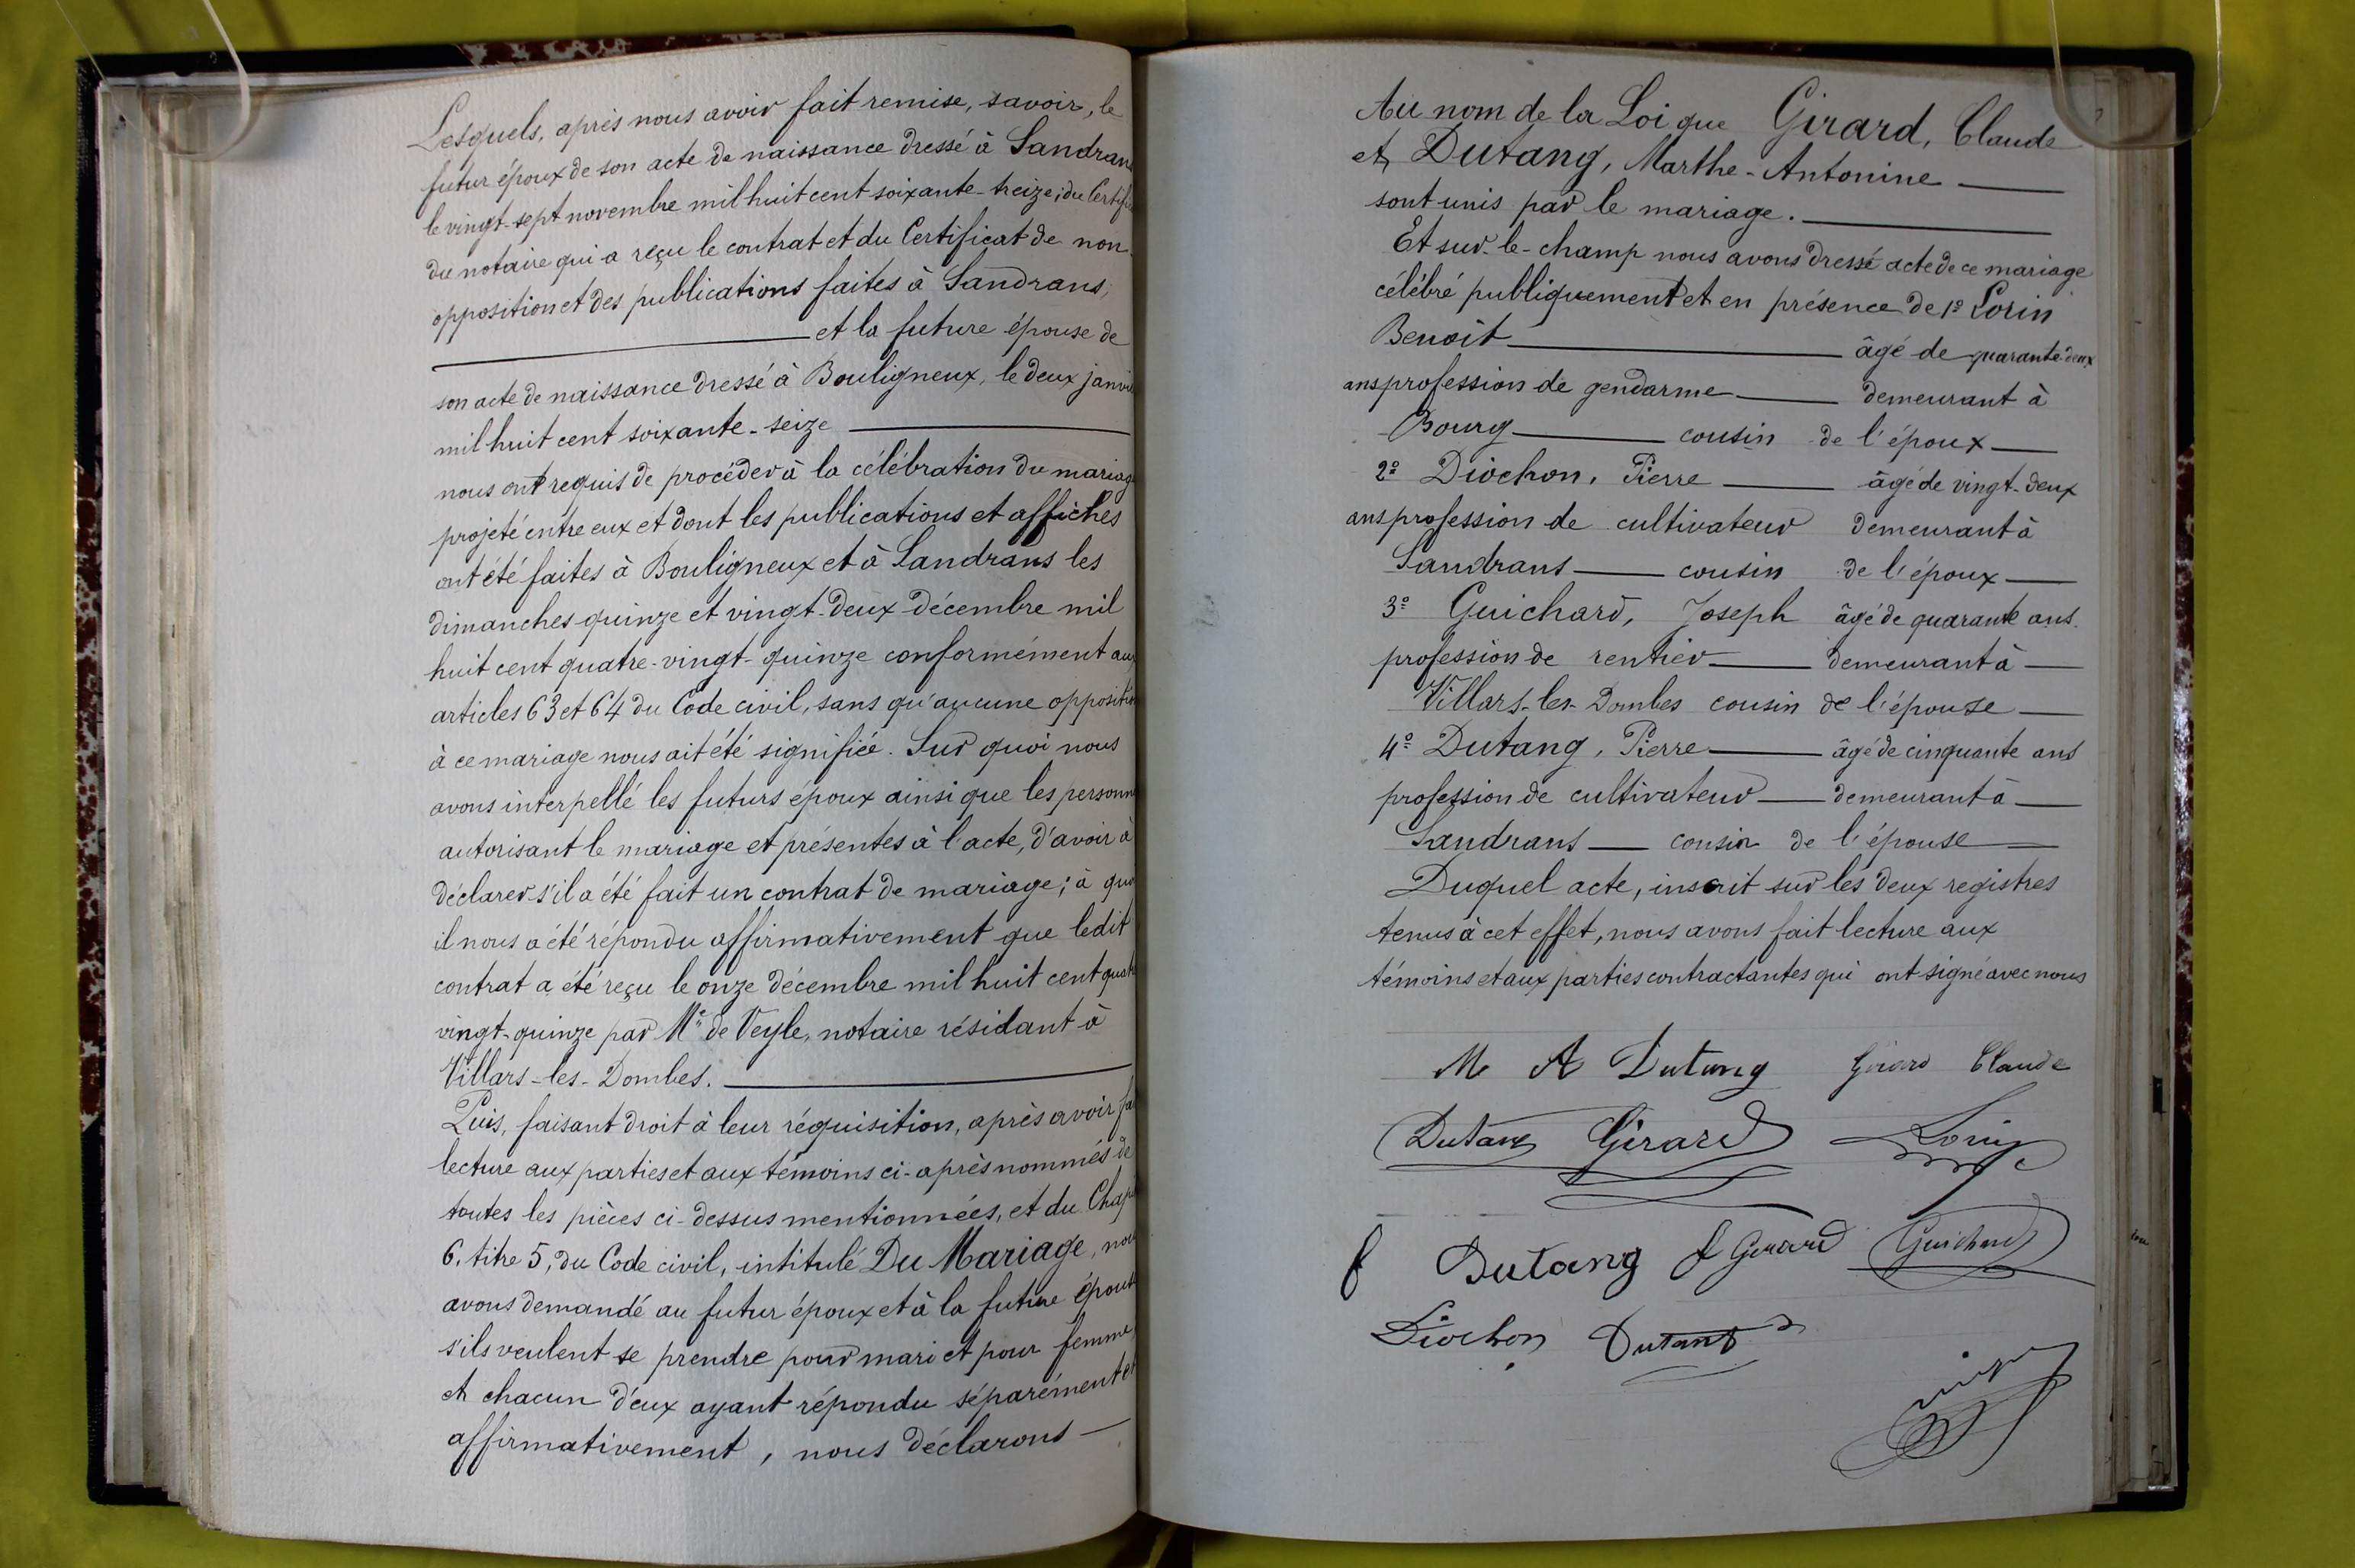 Lesquels, après nous avoir fait remise, savoir, le
futur époux de son acte de naissance dressé à Sandrans
le vingt-sept novembre mil huit cent soixante-treize; du Certifi
du notaire qui a reçu le contrat et du Certificat de non
opposition et des publications faites à Sandrans,
et la future épouse de
son acte de naissance dressé à Bouligneux, le deux janvie
mil huit cent soixante-seize
nous ont requis de procéder à la célébration du mariage
projeté entre eux et dont les publications et affiches
ont été faites à Bouligneux et à Sandrans les
dimanches quinze et vingt-deux décembre mil
huit cent quatre-vingt-quinze conformément aux
articles 63 et 64 du Code civil, sans qu'aucune opposition
à ce mariage nous ait été signifiée. Sur quoi nous
avons interpellé les futurs époux ainsi que les personn
autorisant le mariage et présentes à l'acte, d'avoir à
déclarer s'il a été fait un contrat de mariage; à quoi
il nous a été répondu affirmativement que ledit
contrat a été reçu le onze décembre mil huit cent quatre
vingt-quinze par Me de Veyle, notaire résidant à
Villars-les-Dombes.
Puis, faisant droit à leur réquisition, après avoir fai
lecture aux parties et aux témoins ci-après nommés de
toutes les pièces ci-dessus mentionnées, et du Chap
6, titre 5, du Code civil, intitulé Du Mariage, nou
avons demandé au futur époux et à la future épouse
s'ils veulent se prendre pour mari et pour femme,
et chacun d'eux ayant répondu séparément et
affirmativement, nous déclarons
Au nom de la Loi que Girard, Claude
et Dutang, Marthe-Antonine
sont unis par le mariage.
Et sur-le-champ nous avons dressé acte de ce mariage
célébré publiquement et en présence de 1º Lorin
Benoit âgé de quarante-deux
ans profession de gendarme demeurant à
Bourg cousin de l'époux
2º Diochon, Pierre âgé de vingt-deux
ans profession de cultivateur demeurant à
Sandrans cousin de l'époux
3º Guichard, Joseph âgé de quarante ans.
profession de rentier demeurant à
Villars-les-Dombes cousin de l'épouse
4º Dutang, Pierre âgé de cinquante ans
profession de cultivateur demeurant à
Sandrans cousin de l'épouse
Duquel acte, inscrit sur les deux registres
tenus à cet effet, nous avons fait lecture aux
témoins et aux parties contractantes qui ont signé avec nous
M A Dutang Girard Claude
Dutang Girard Lorin
f Dutang f Gerard Guichard
Diochon Dutant